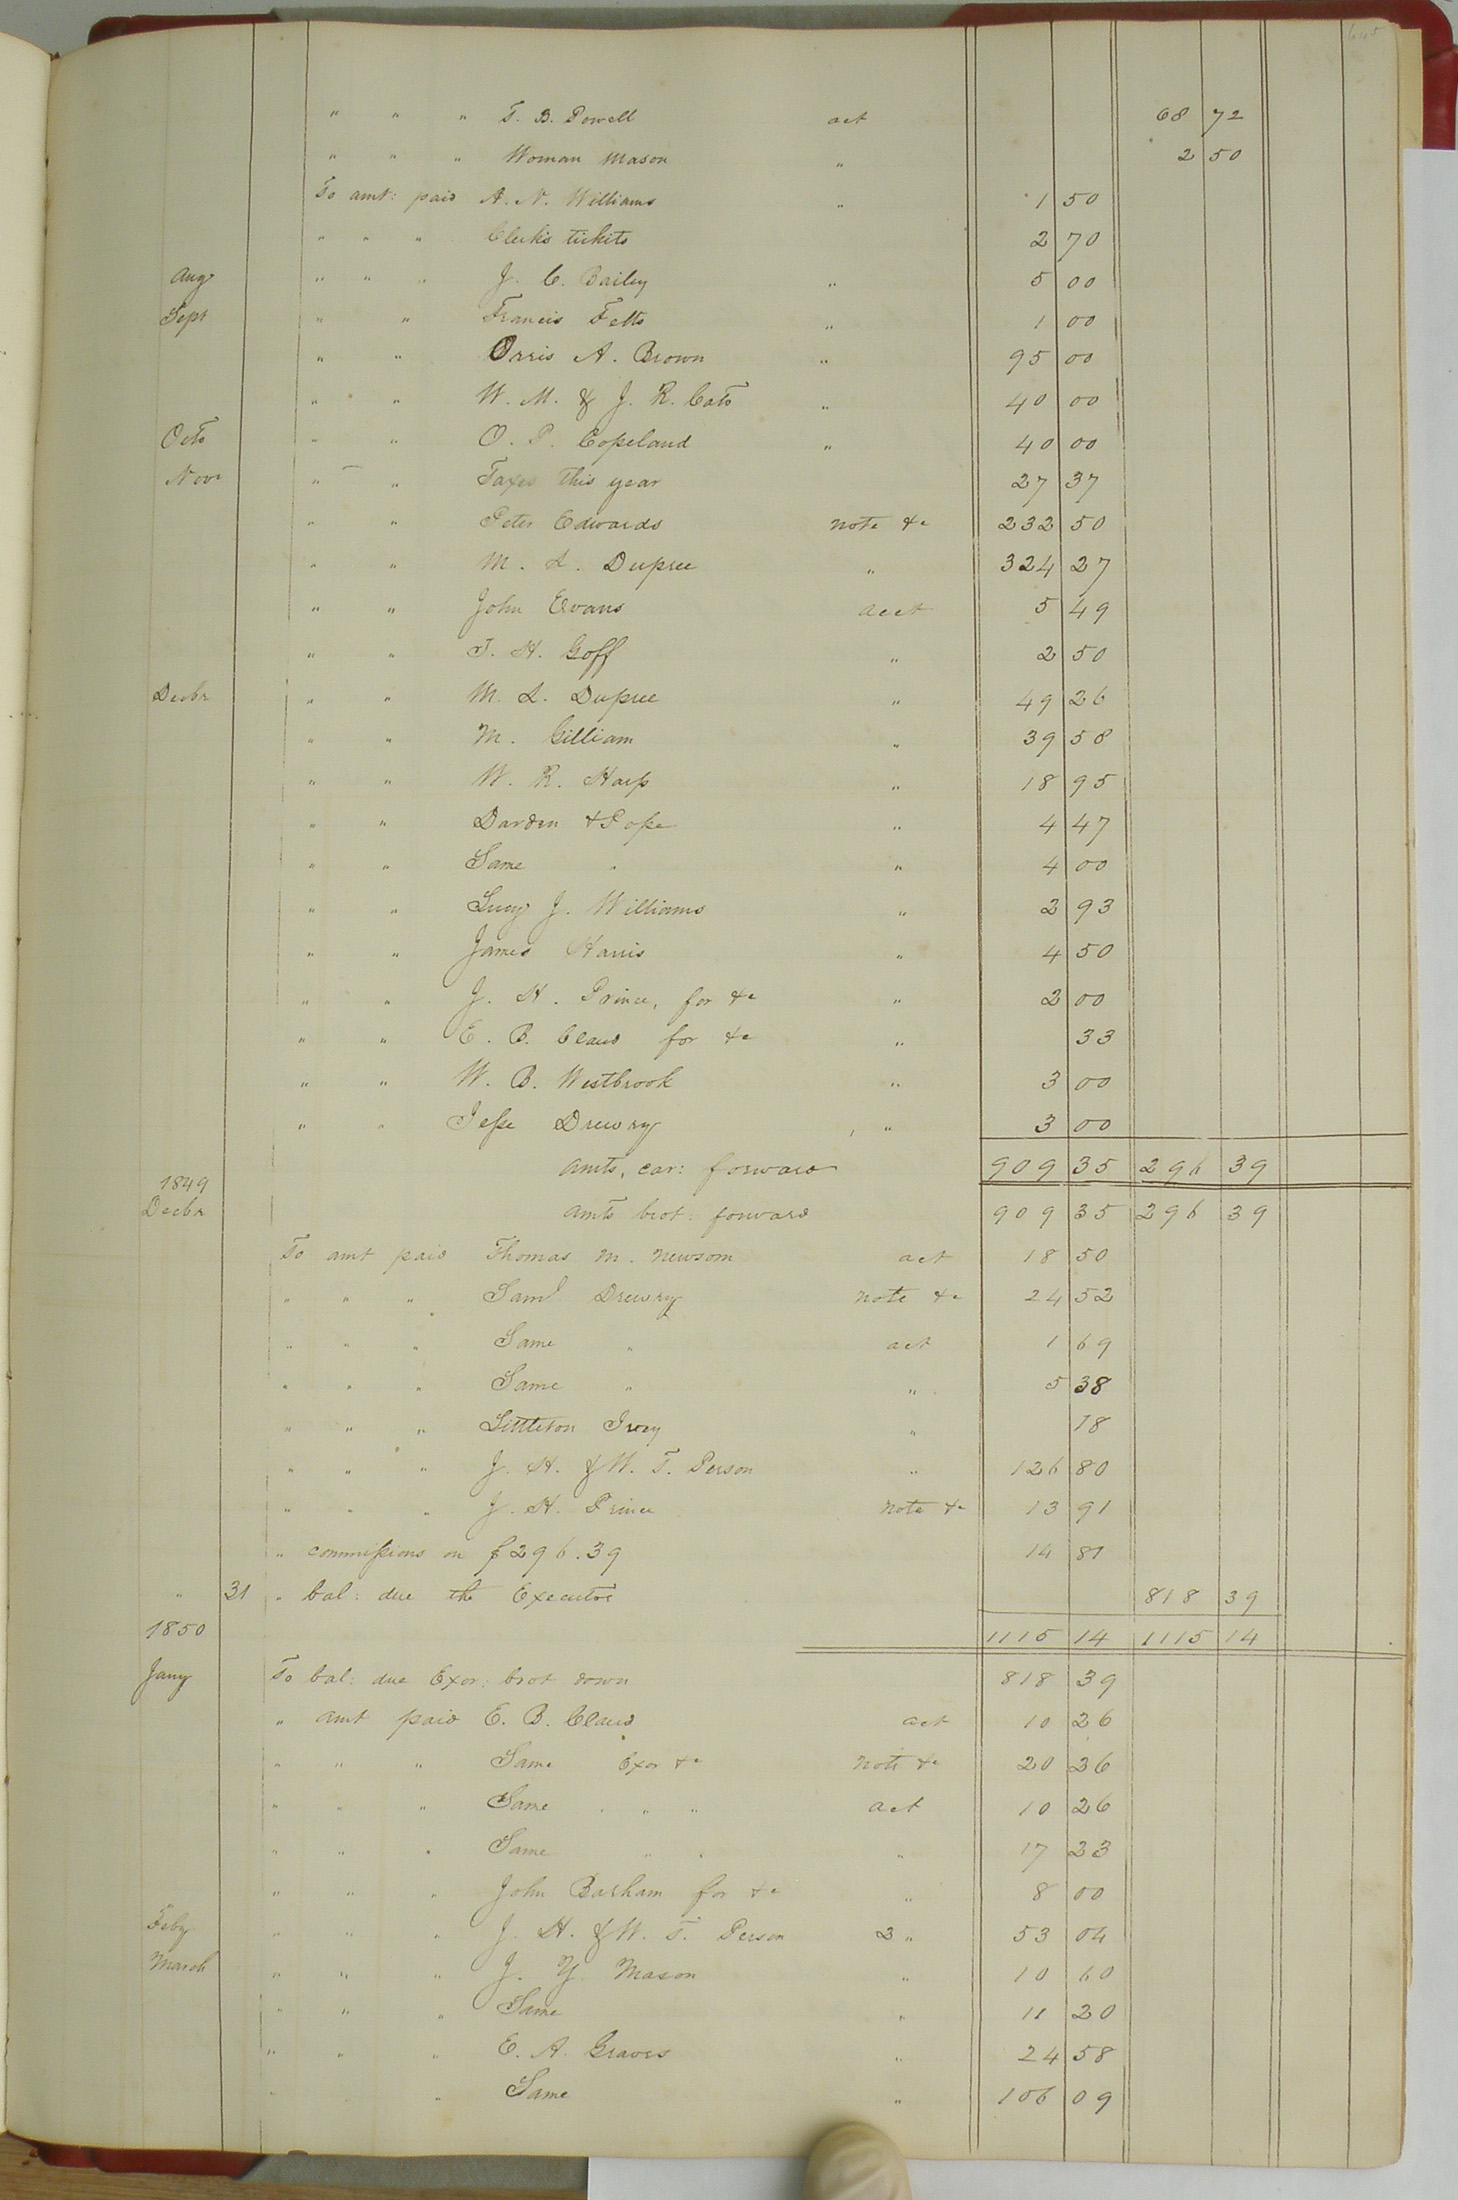 645
" " " T. B. Powell act 68 72
" " " Woman Mason " 2 50
To amt: paid A. N. Williams " 1 50
" " " Clerk's tickets 2 70
Aug " " " J. C. Bailey " 5 00
Sept " " Francis Felts " 1 00
" " Orris A. Brown " 95 00
" " W. M. & J. R. Cato " 40 00
Octo " " O. P. Copeland " 40 00
Novr " " Taxes this year 27 37
" " Peter Edwards note &c 232 50
" " M. L. Dupree " 324 27
" " John Evans acct 5 49
" " T. H. Goff " 2 50
Decbr " " M. L. Dupree " 49 26
" " M. Gilliam " 39 58
" " W. R. Harp " 18 95
" " Darden & Pope " 4 47
" " Same " " 4 00
" " Lucy J. Williams " 2 93
" " James Harris " 4 50
" " J. H. Prince, for &c " 2 00
" " E. B. Claud for &c " 33
" " W. B. Westbrook " 3 00
" " Jesse Drewry " 3 00
amts, car: forward 909 35 296 39
1849
Decbr amts brot: forward 909 35 296 39
To amt paid Thomas M. Newsom act 18 50
" " " Saml Drewry note &c 24 52
" " " Same " act 1 69
" " " Same " " 5 38
" " " Littleton Ivey " 18
" " " J. H. & W. T. Person " 126 80
" " " J. H. Prince note &c 13 91
" commissions on $296.39 14 81
" 31 " bal: due the Executor 818 39
1850 1115 14 1115 14
Jany To bal: due Exor: brot down 818 39
" amt paid E. B. Claud act 10 26
" " " Same Exor &c note &c 20 26
" " " Same " " " act 10 26
" " " Same " " " 17 23
" " " John Barham for &c " 8 00
Feby " " " J. H. & W. T. Person 3 " 53 04
March " " " J. Y. Mason " 10 60
" " " Same " 11 20
" " " E. A. Graves " 24 58
" " Same " 106 09